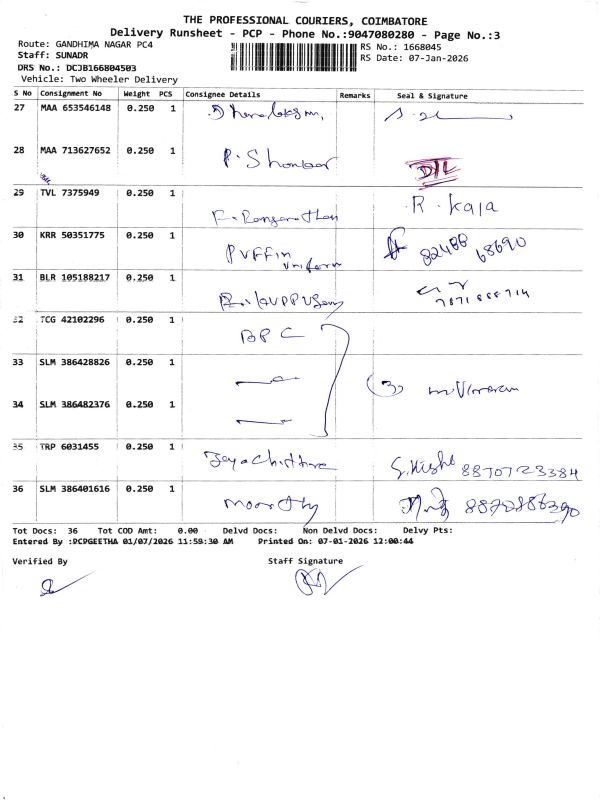 THE PROFESSIONAL COURIERS, COIMBATORE
Delivery Runsheet - PCP - Phone No.:9047080280 - Page No.:3
Route: GANDHIMA NAGAR PC4
RS No.: 1668045
Staff: SUNADR
RS Date: 07-Jan-2026
DRS No.: DCJB166804503
Vehicle: Two Wheeler Delivery
S No Consignment No Weight PCS Consignee Details Remarks Seal & Signature
27 MAA 653546148 0.250 1
28 MAA 713627652 0.250 1 P. Shankar D/L
29 TVL 7375949 0.250 1 R. Kaja
30 KRR 50351775 0.250 1 PVFFin uniform 82488 68690
31 BLR 105188217 0.250 1
32 TCG 42102296 0.250 1 BPC
33 SLM 386428826 0.250 1 (3)
34 SLM 386482376 0.250 1
35 TRP 6031455 0.250 1 8870723384
36 SLM 386401616 0.250 1 Moorthy
Tot Docs: 36 Tot COD Amt: 0.00 Delvd Docs: Non Delvd Docs: Delvy Pts:
Entered By :PCPGEETHA 01/07/2026 11:59:30 AM Printed On: 07-01-2026 12:00:44
Verified By Staff Signature